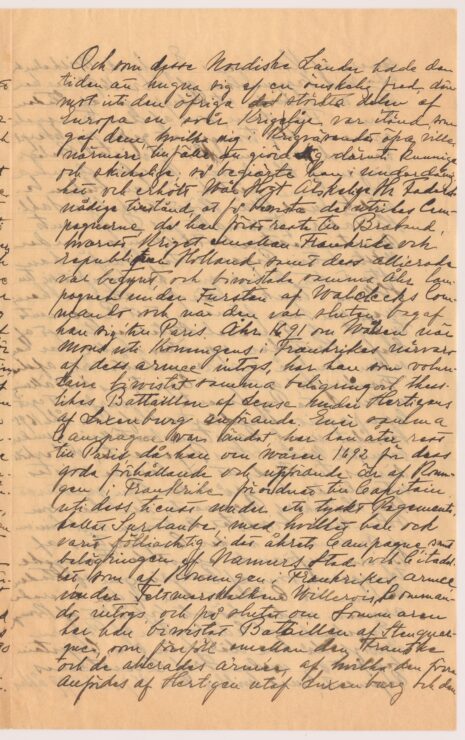 Och som desse Nordiske Länder hade den
tiden än hugna sig af en önskelig fred, där
mot uti den öfriga största delen af
Europa en svår Krigseld var tänd, som
gaf dem hvilka sig i Krigsväsendet öfva ville
närmare tillfälle, at giöra sig däruti kunnige
och skickelige, så begiärte han i underdånig
het och erhölt Wår Högt Älskelige Hr Faders
nådige tilstånd, at få bivista de utrikes Cam-
pagnerne, då han först reste til Braband,
hvarest Kriget emellan Frankrike och
republiquen Holland samt dess allierade
var begynt och bivistade samma åhr Cam-
pagnen under Fursten af Waldecks Com-
mando och när den var slutin begaf
han sig til Paris. Åhr 1691 om Wåren när
Mons uti Konungens i Frankrikes närvaro
af dess armee intogs, har han som volon-
taire bivistat samma belägring och thes-
likes Battaillen af Leuse under Hertigens
af Luxenburg anförande. Efter samma
Campagne var ändat har han åter rest
til Paris då han om wåren 1692 för dess
goda förhållande och upförande är af Konun-
gen i Frankrike förordnat til Capitain
uti dess tienst under ett tyskt Regemente
kallat Surlaube, med hvilket han ock
varit följachtig i det åhrets Campagne samt
belägringen af Namurs Stad och Citadel
let som af Konungen i Frankrikes armee,
under Feltmarskalkens Willerois, Comman-
do intogs och på slutet om Sommaren
har han bivistat Battaillen af Stenquer-
quen, som förföll emellan den Franska
och de allierades armeer, af hvilka den förra
anfördes af Hertigen utaf Luxenburg och den